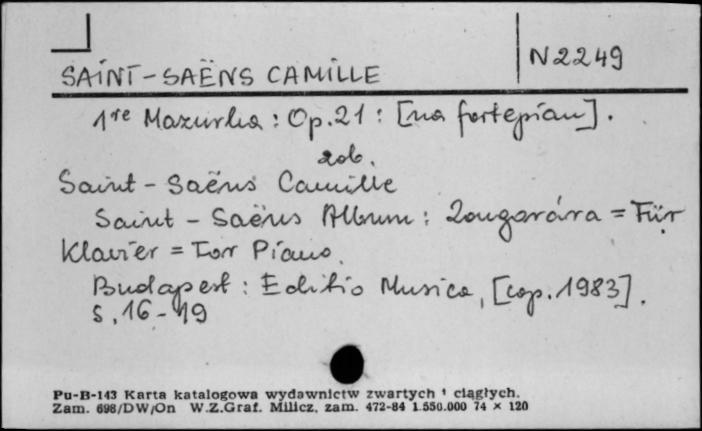 N2249
SAINT-SAËNS CAMILLE
1re Mazurka : Op.21 : [na fortepian].
zob.
Saint-Saëns Camille
Saint-Saëns Album : Zongorára = Für
Klavier = For Piano.
Budapest : Editio Musica, [cop. 1983].
S. 16-19
Pu-B-143 Karta katalogowa wydawnictw zwartych i ciągłych.
Zam. 698/DW/On W.Z.Graf. Milicz, zam. 472-84 1.550.000 74 × 120